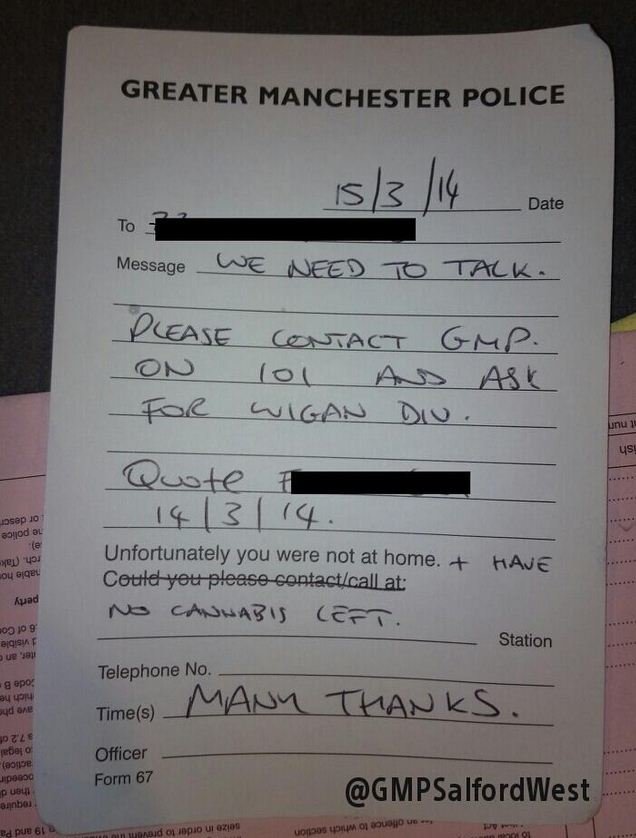 GREATER MANCHESTER POLICE
15/3/14 Date
To
Message WE NEED TO TALK.
PLEASE CONTACT GMP.
ON 101 AND ASK
FOR WIGAN DIV.
Quote F
14/3/14.
Unfortunately you were not at home. + HAVE
Could you please contact/call at:
NO CANNABIS LEFT.
Station
Telephone No.
Time(s) MANY THANKS.
Officer
Form 67
@GMPSalfordWest